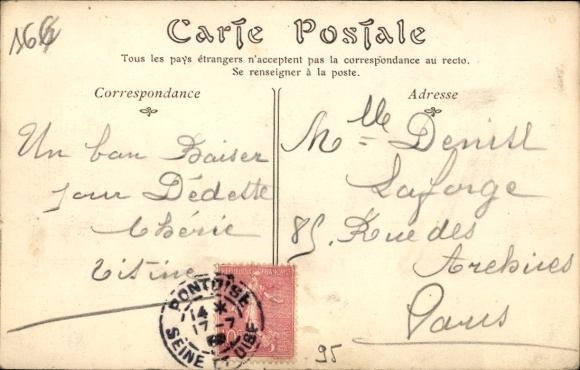 166
Carte Postale
Tous les pays étrangers n'acceptent pas la correspondance au recto.
Se renseigner à la poste.
Correspondance
Un bon Baiser
pour Dédette
Chérie
Titine
Adresse
Mlle Denise
Laforge
85. Rue des
Archives
Paris
PONTOISE
14 *
17 - 7
SEINE ET OISE
95